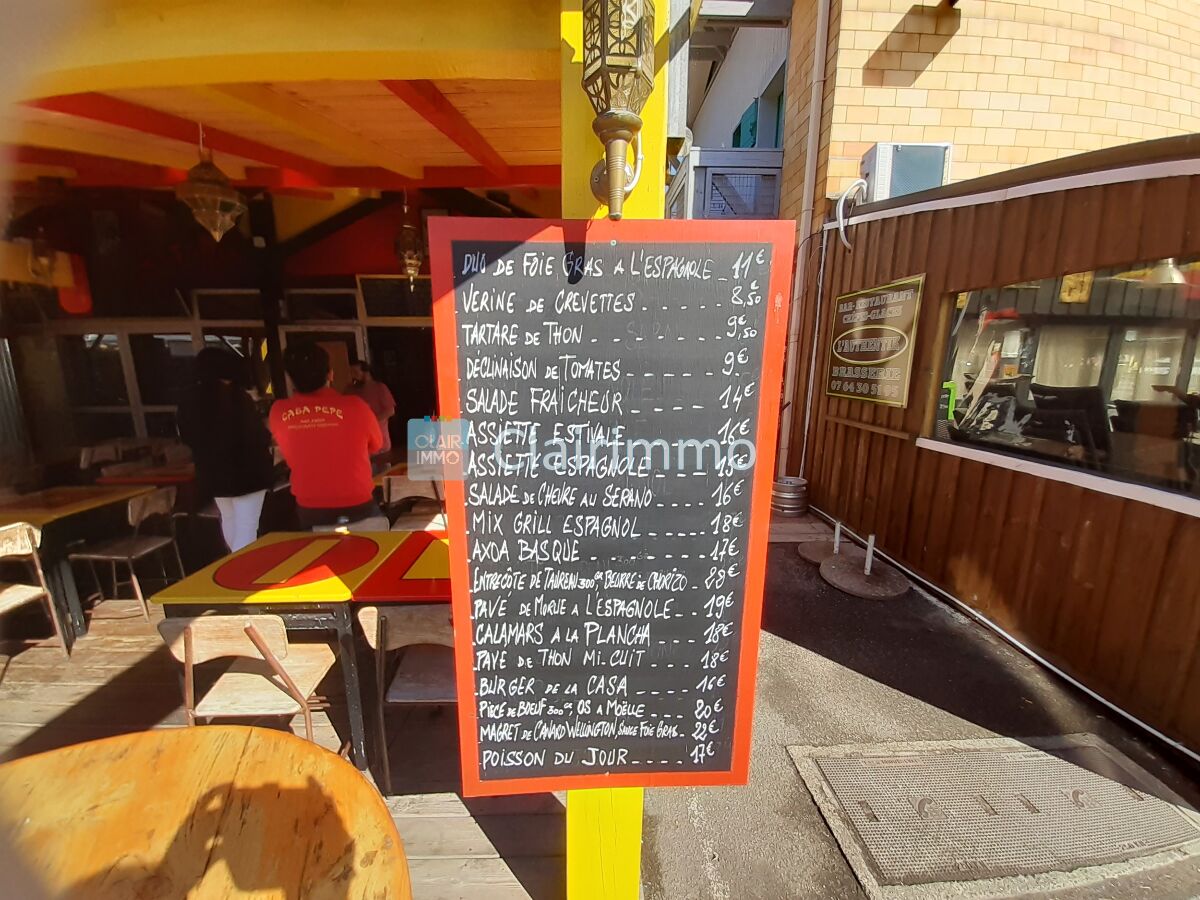 DUO DE FOIE GRAS A L'ESPAGNOLE _ 11€
VERINE DE CREVETTES _ _ _ _ _ 8,50€
TARTARE DE THON _ _ _ _ _ _ _ 9,50€
DÉCLINAISON DE TOMATES _ _ _ _ _ _ 9€
SALADE FRAÎCHEUR _ _ _ _ 14€
ASSIETTE ESTIVALE _ _ _ _ 16€
ASSIETTE ESPAGNOLE _ _ _ _
SALADE DE CHEVRE AU SERANO _ _ _ _ 16€
MIX GRILL ESPAGNOL _ _ _ _ 18€
AXOA BASQUE _ _ _ _ _ _ _ 17€
ENTRECÔTE DE TAUREAU 300gr, BEURRE DE CHORIZO _
PAVÉ DE MORUE A L'ESPAGNOLE _ _ 19€
CALAMARS A LA PLANCHA _ _ _ 18€
PAVE DE THON MI-CUIT _ _ _ _ 18€
BURGER DE LA CASA _ _ _ _ 16€
PIÈCE DE BOEUF 300gr, OS A MOËLLE _ _ _ _ 20€
MAGRET DE CANARD WELLINGTON, SAUCE FOIE GRAS _ 22€
POISSON DU JOUR _ _ _ _ 17€
CASA PEPE
CLAIR IMMO
Clairimmo
BAR-RESTAURANT
CREPES-GLACES
L'AUTHENTIK
BRASSERIE
07 64 30 51 95